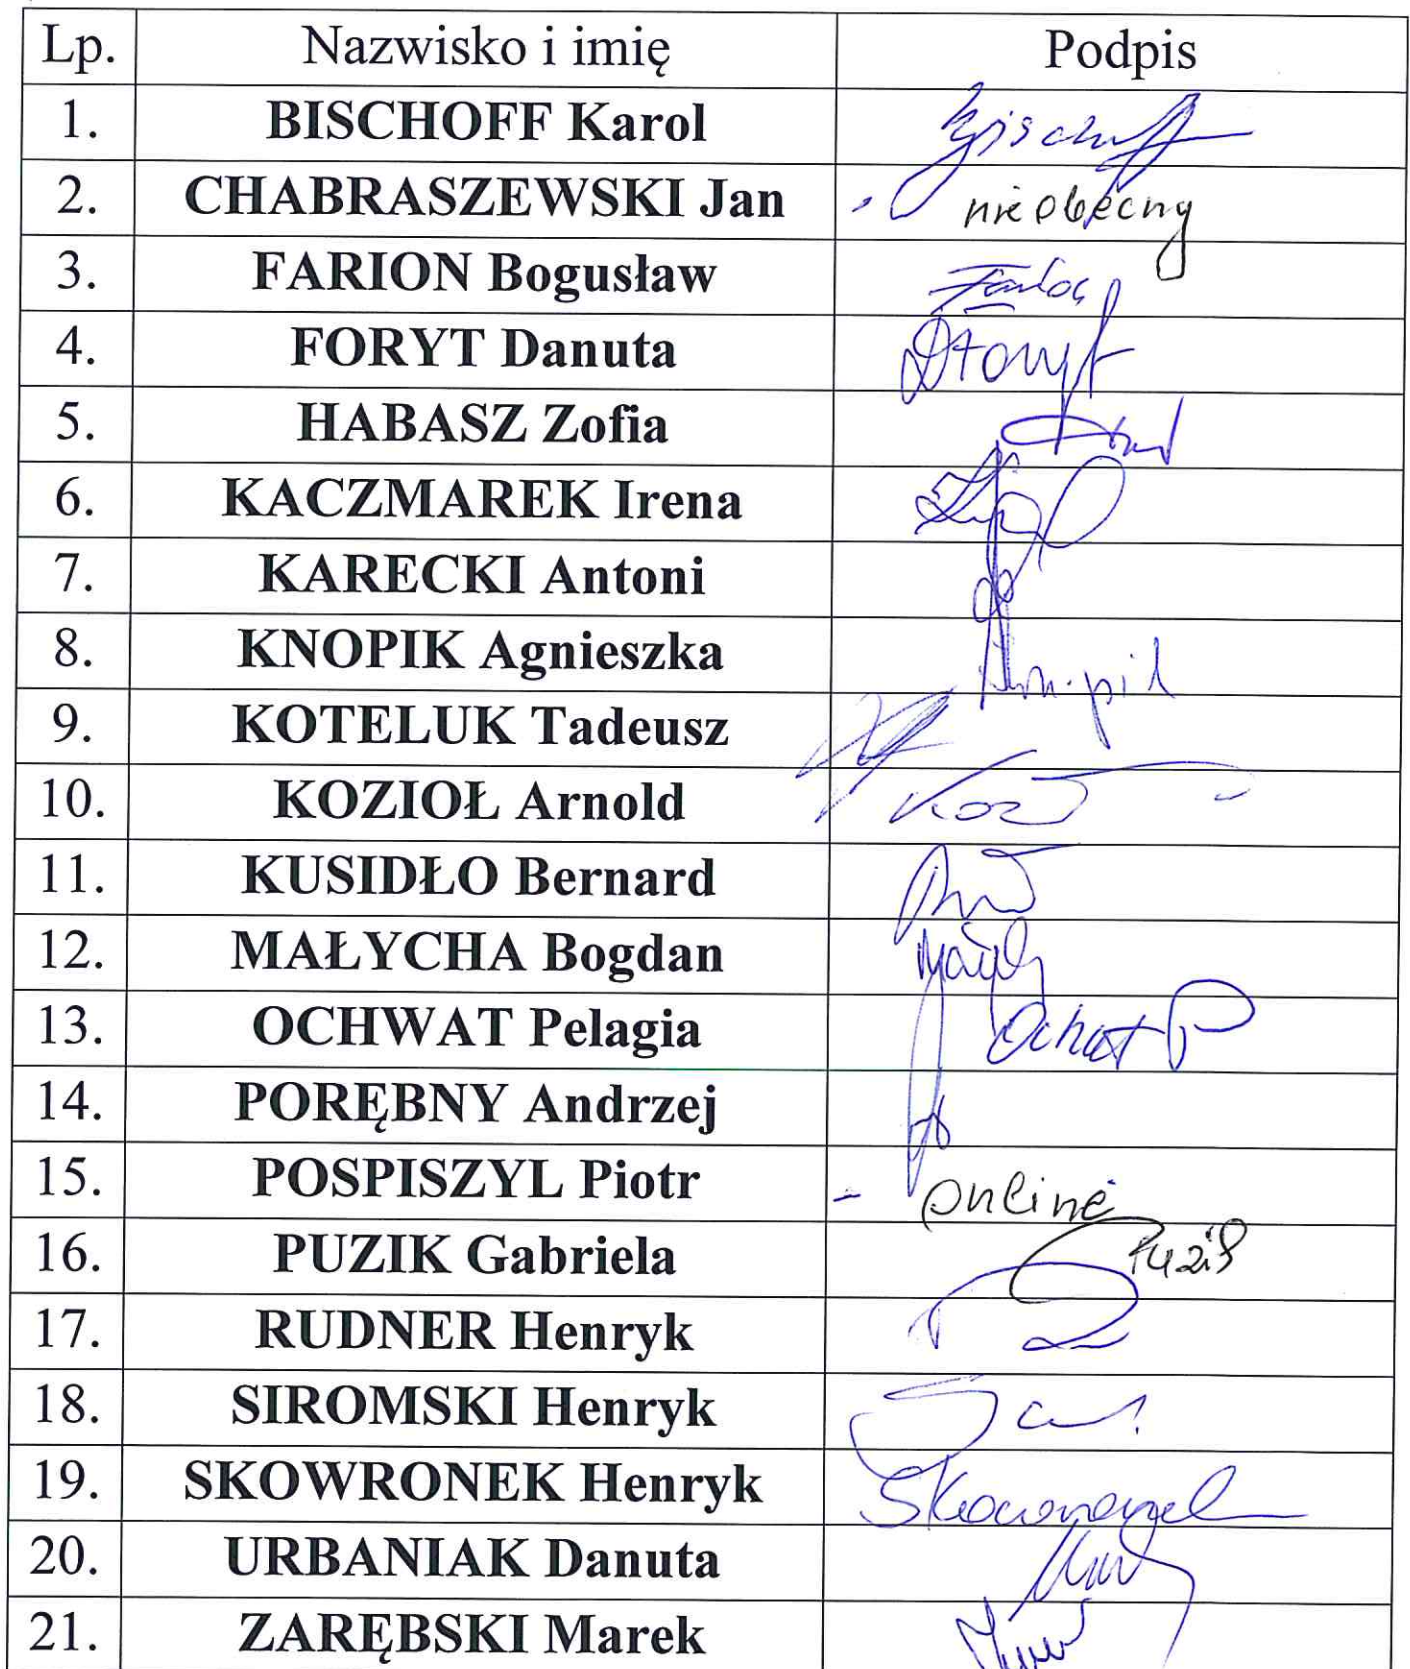 Lp. Nazwisko i imię Podpis
1. BISCHOFF Karol Bischoff
2. CHABRASZEWSKI Jan nieobecny
3. FARION Bogusław
4. FORYT Danuta DForyt
5. HABASZ Zofia
6. KACZMAREK Irena
7. KARECKI Antoni
8. KNOPIK Agnieszka
9. KOTELUK Tadeusz
10. KOZIOŁ Arnold
11. KUSIDŁO Bernard
12. MAŁYCHA Bogdan
13. OCHWAT Pelagia
14. PORĘBNY Andrzej
15. POSPISZYL Piotr - online
16. PUZIK Gabriela Puzik
17. RUDNER Henryk
18. SIROMSKI Henryk
19. SKOWRONEK Henryk Skowronek
20. URBANIAK Danuta
21. ZARĘBSKI Marek